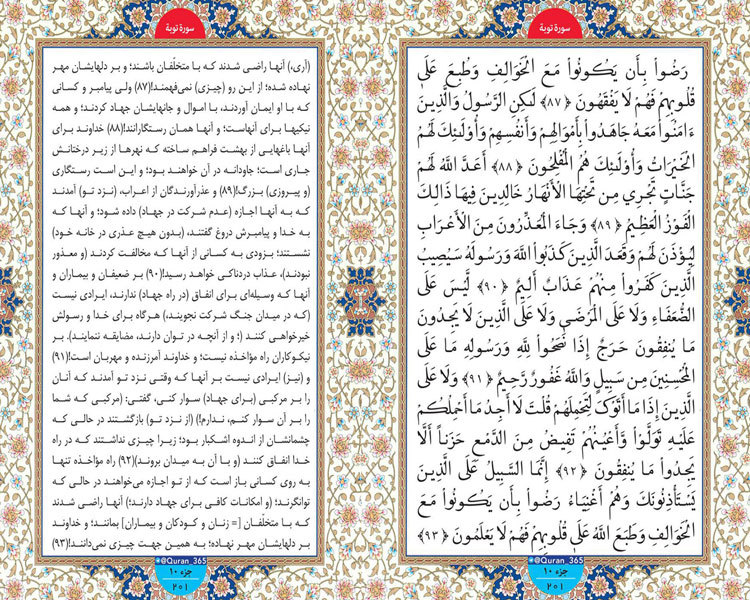 سورة توبة
رَضُواْ بِأَن يَكُونُواْ مَعَ الْخَوَالِفِ وَطُبِعَ عَلَىٰ
قُلُوبِهِمْ فَهُمْ لَا يَفْقَهُونَ ﴿۸۷﴾ لَٰكِنِ الرَّسُولُ وَالَّذِينَ
ءَامَنُواْ مَعَهُ جَاهَدُواْ بِأَمْوَالِهِمْ وَأَنفُسِهِمْ وَأُوْلَٰئِكَ لَهُمُ
الْخَيْرَاتُ وَأُوْلَٰئِكَ هُمُ الْمُفْلِحُونَ ﴿۸۸﴾ أَعَدَّ اللَّهُ لَهُمْ
جَنَّاتٍ تَجْرِي مِن تَحْتِهَا الْأَنْهَارُ خَالِدِينَ فِيهَا ذَٰلِكَ
الْفَوْزُ الْعَظِيمُ ﴿۸۹﴾ وَجَاءَ الْمُعَذِّرُونَ مِنَ الْأَعْرَابِ
لِيُؤْذَنَ لَهُمْ وَقَعَدَ الَّذِينَ كَذَبُواْ اللَّهَ وَرَسُولَهُ سَيُصِيبُ
الَّذِينَ كَفَرُواْ مِنْهُمْ عَذَابٌ أَلِيمٌ ﴿۹۰﴾ لَّيْسَ عَلَى
الضُّعَفَاءِ وَلَا عَلَى الْمَرْضَىٰ وَلَا عَلَى الَّذِينَ لَا يَجِدُونَ
مَا يُنفِقُونَ حَرَجٌ إِذَا نَصَحُواْ لِلَّهِ وَرَسُولِهِ مَا عَلَى
الْمُحْسِنِينَ مِن سَبِيلٍ وَاللَّهُ غَفُورٌ رَّحِيمٌ ﴿۹۱﴾ وَلَا عَلَى
الَّذِينَ إِذَا مَا أَتَوْكَ لِتَحْمِلَهُمْ قُلْتَ لَا أَجِدُ مَا أَحْمِلُكُمْ
عَلَيْهِ تَوَلَّواْ وَّأَعْيُنُهُمْ تَفِيضُ مِنَ الدَّمْعِ حَزَنًا أَلَّا
يَجِدُواْ مَا يُنفِقُونَ ﴿۹۲﴾ إِنَّمَا السَّبِيلُ عَلَى الَّذِينَ
يَسْتَأْذِنُونَكَ وَهُمْ أَغْنِيَاءُ رَضُواْ بِأَن يَكُونُواْ مَعَ
الْخَوَالِفِ وَطَبَعَ اللَّهُ عَلَىٰ قُلُوبِهِمْ فَهُمْ لَا يَعْلَمُونَ ﴿۹۳﴾
@Quran_365
جزء ۱۰
۲۰۱
سورة توبة
(آری،) آنها راضی شدند که با متخلّفان باشند؛ و بر دلهایشان مهر
نهاده شده؛ از این رو (چیزی) نمی‌فهمند!(۸۷) ولی پیامبر و کسانی
که با او ایمان آوردند، با اموال و جانهایشان جهاد کردند؛ و همه
نیکیها برای آنهاست؛ و آنها همان رستگارانند!(۸۸) خداوند برای
آنها باغهایی از بهشت فراهم ساخته که نهرها از زیر درختانش
جاری است؛ جاودانه در آن خواهند بود؛ و این است رستگاری
(و پیروزی) بزرگ!(۸۹) و عذرآورندگان از اعراب، (نزد تو) آمدند
که به آنها اجازه (عدم شرکت در جهاد) داده شود؛ و آنها که
به خدا و پیامبرش دروغ گفتند، (بدون هیچ عذری در خانه خود)
نشستند؛ بزودی به کسانی از آنها که مخالفت کردند (و معذور
نبودند)، عذاب دردناکی خواهد رسید!(۹۰) بر ضعیفان و بیماران و
آنها که وسیله‌ای برای انفاق (در راه جهاد) ندارند، ایرادی نیست
(که در میدان جنگ شرکت نجویند،) هرگاه برای خدا و رسولش
خیرخواهی کنند (؛ و از آنچه در توان دارند، مضایقه ننمایند). بر
نیکوکاران راه مؤاخذه نیست؛ و خداوند آمرزنده و مهربان است!(۹۱)
و (نیز) ایرادی نیست بر آنها که وقتی نزد تو آمدند که آنان
را بر مرکبی (برای جهاد) سوار کنی، گفتی: (مرکبی که شما
را بر آن سوار کنم، ندارم!) (از نزد تو) بازگشتند در حالی که
چشمانشان از اندوه اشکبار بود؛ زیرا چیزی نداشتند که در راه
خدا انفاق کنند (و با آن به میدان بروند)(۹۲) راه مؤاخذه تنها
به روی کسانی باز است که از تو اجازه می‌خواهند در حالی که
توانگرند؛ (و امکانات کافی برای جهاد دارند؛) آنها راضی شدند
که با متخلّفان [= زنان و کودکان و بیماران] بمانند؛ و خداوند
بر دلهایشان مهر نهاده؛ به همین جهت چیزی نمی‌دانند!(۹۳)
@Quran_365
جزء ۱۰
۲۰۱